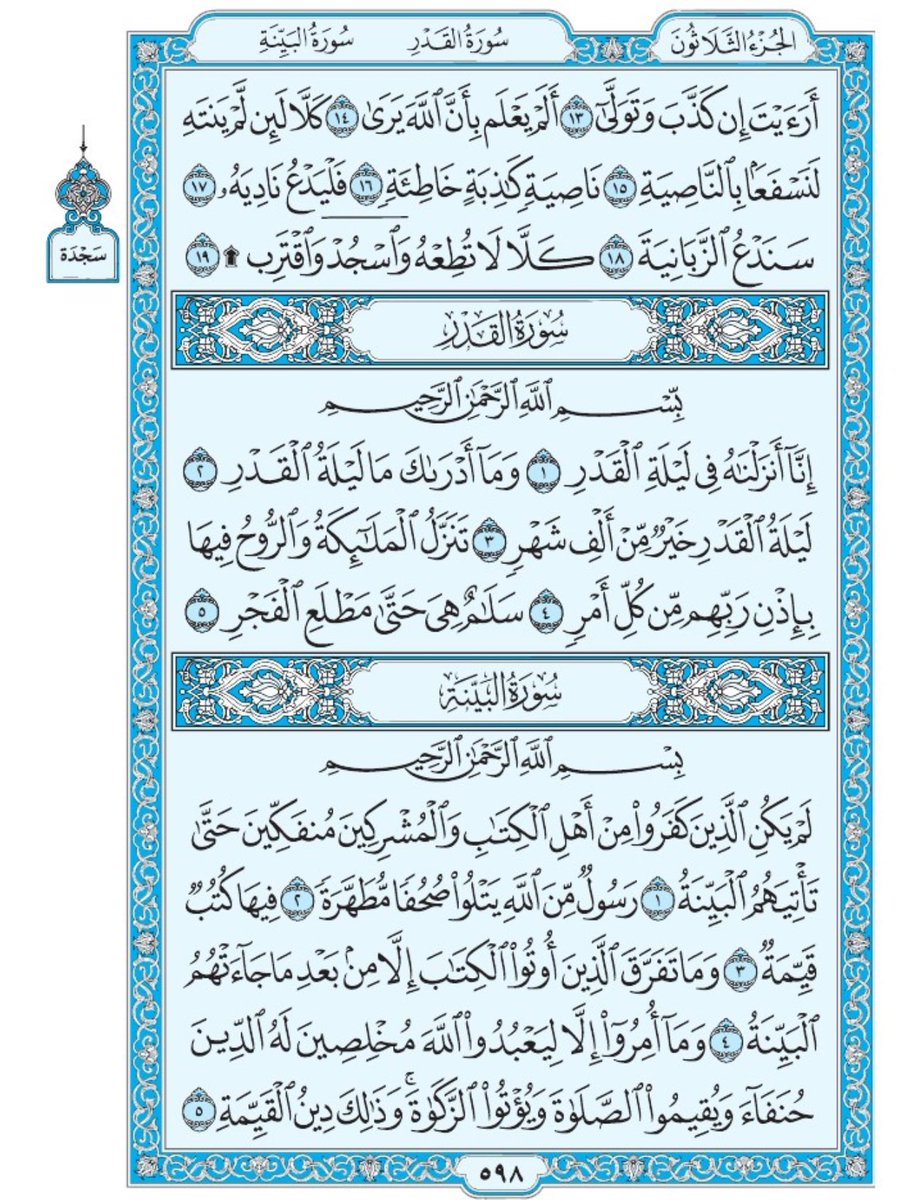 الجُزْءُ الثَّلَاثُونَ
سُورَةُ القَدْرِ سُورَةُ البَيِّنَةِ
أَرَءَيْتَ إِن كَذَّبَ وَتَوَلَّىٰٓ ١٣ أَلَمْ يَعْلَم بِأَنَّ ٱللَّهَ يَرَىٰ ١٤ كَلَّا لَئِن لَّمْ يَنتَهِ
لَنَسْفَعًۢا بِٱلنَّاصِيَةِ ١٥ نَاصِيَةٍ كَٰذِبَةٍ خَاطِئَةٍ ١٦ فَلْيَدْعُ نَادِيَهُۥ ١٧
سَنَدْعُ ٱلزَّبَانِيَةَ ١٨ كَلَّا لَا تُطِعْهُ وَٱسْجُدْ وَٱقْتَرِب ۩ ١٩
سَجْدَة
سُورَةُ القَدْرِ
بِسْمِ ٱللَّهِ ٱلرَّحْمَٰنِ ٱلرَّحِيمِ
إِنَّآ أَنزَلْنَٰهُ فِى لَيْلَةِ ٱلْقَدْرِ ١ وَمَآ أَدْرَىٰكَ مَا لَيْلَةُ ٱلْقَدْرِ ٢
لَيْلَةُ ٱلْقَدْرِ خَيْرٌ مِّنْ أَلْفِ شَهْرٍ ٣ تَنَزَّلُ ٱلْمَلَٰٓئِكَةُ وَٱلرُّوحُ فِيهَا
بِإِذْنِ رَبِّهِم مِّن كُلِّ أَمْرٍ ٤ سَلَٰمٌ هِىَ حَتَّىٰ مَطْلَعِ ٱلْفَجْرِ ٥
سُورَةُ البَيِّنَةِ
بِسْمِ ٱللَّهِ ٱلرَّحْمَٰنِ ٱلرَّحِيمِ
لَمْ يَكُنِ ٱلَّذِينَ كَفَرُوا۟ مِنْ أَهْلِ ٱلْكِتَٰبِ وَٱلْمُشْرِكِينَ مُنفَكِّينَ حَتَّىٰ
تَأْتِيَهُمُ ٱلْبَيِّنَةُ ١ رَسُولٌ مِّنَ ٱللَّهِ يَتْلُوا۟ صُحُفًا مُّطَهَّرَةً ٢ فِيهَا كُتُبٌ
قَيِّمَةٌ ٣ وَمَا تَفَرَّقَ ٱلَّذِينَ أُوتُوا۟ ٱلْكِتَٰبَ إِلَّا مِنۢ بَعْدِ مَا جَآءَتْهُمُ
ٱلْبَيِّنَةُ ٤ وَمَآ أُمِرُوٓا۟ إِلَّا لِيَعْبُدُوا۟ ٱللَّهَ مُخْلِصِينَ لَهُ ٱلدِّينَ
حُنَفَآءَ وَيُقِيمُوا۟ ٱلصَّلَوٰةَ وَيُؤْتُوا۟ ٱلزَّكَوٰةَ ۚ وَذَٰلِكَ دِينُ ٱلْقَيِّمَةِ ٥
٥٩٨